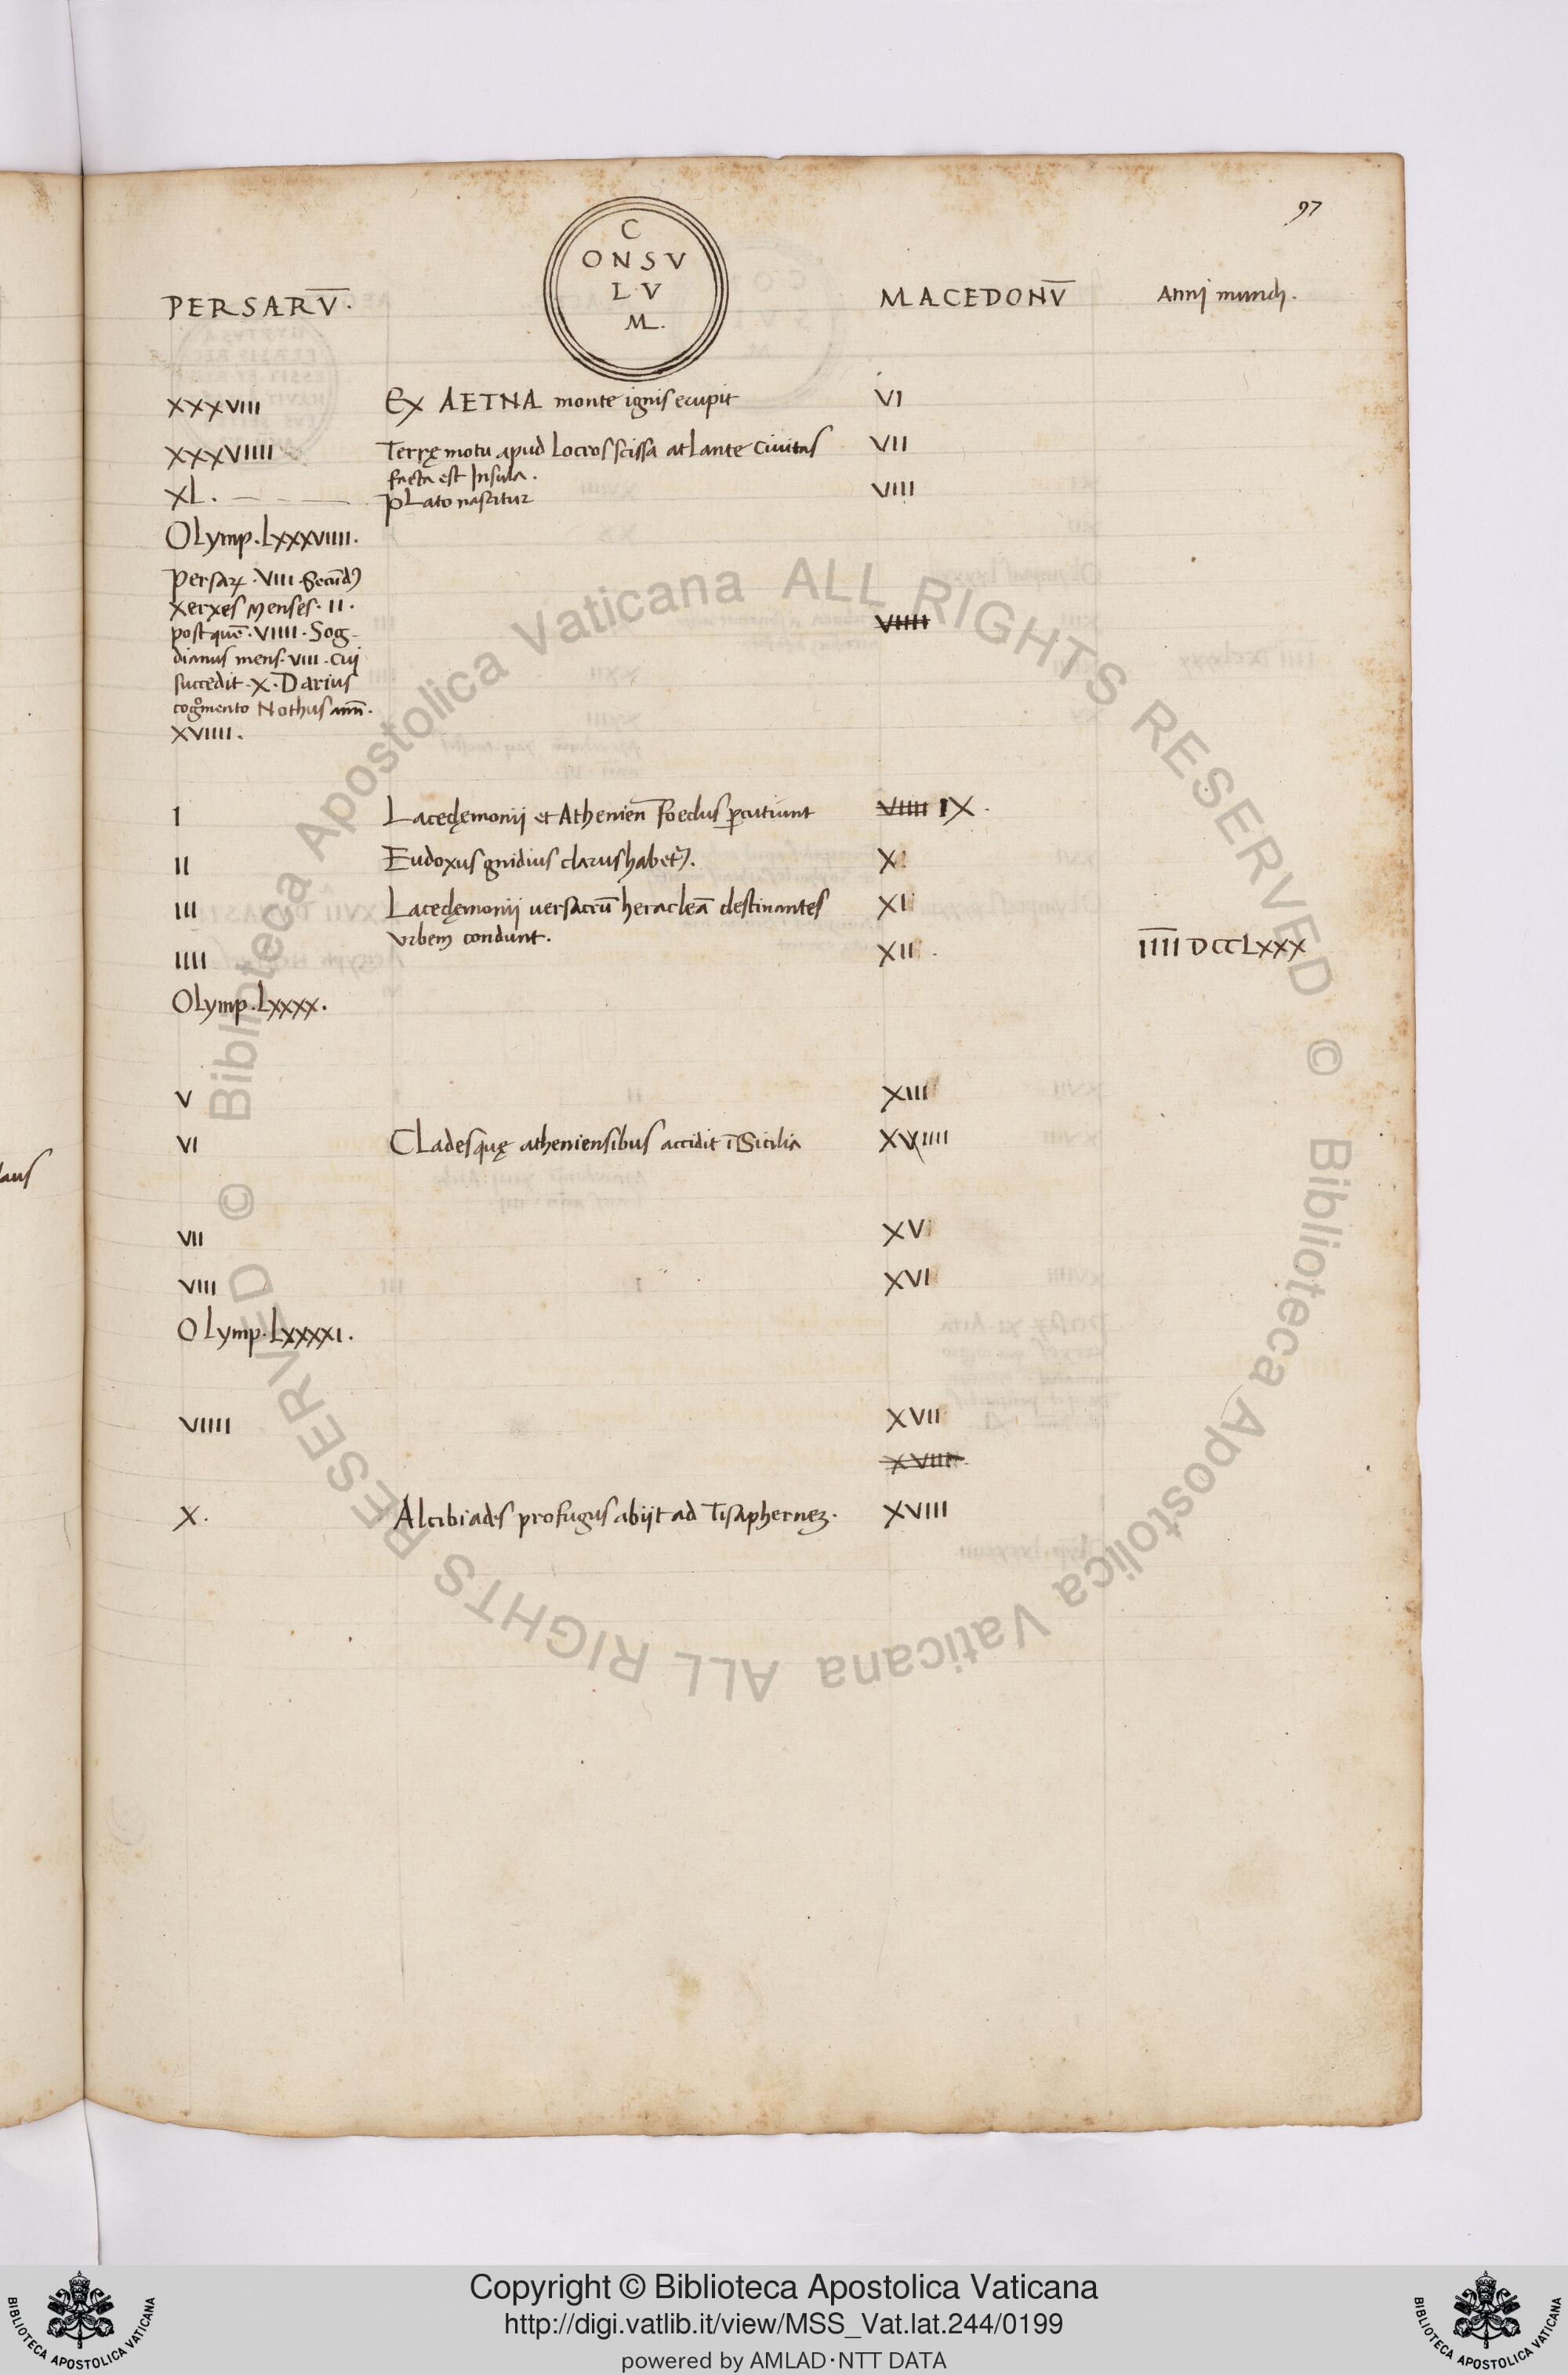 97
C
ONSV
L·V
M.
PERSARV̅.
MACEDONV̅
Anni mundi.
XXXVIII
Ex AETNA monte ignis erupit
VI
XXXVIIII
Terrę motu apud Locros scissa atLante Civitas
facta est Insula.
VII
XL.
pLato nascitur
VIII
OLymp.LXXXVIIII.
Persaꝝ · VIII · Secūdꝰ
xerxes Menses · II ·
post quē · VIIII · Sog-
dianus mens · VIII · Cui
succedit · X · Darius
cogͦmento Nothus ann̄.
XVIIII.
VIIII
I
Lacedęmonij et Athenien̄ Foedus ꝑcutiunt
VIIII IX.
II
Eudoxus gnidius clarus habetꝰ.
X
III
Lacedęmonij versacrū heracleā destinantes
Vrbem condunt.
XI
IIII
XII
I̅I̅I̅I̅ DCCLXXX
OLymp.LXXXX.
V
XIII
VI
CLades quę atheniensibus accidit ī Sicilia
XVIIII
VII
XV
VIII
XVI
OLymp.LXXXXI.
VIIII
XVII
XVIII
X.
Alcibiades profugus abijt ad Tisaphernez.
XVIII
aus
© Biblioteca Apostolica Vaticana ALL RIGHTS RESERVED © Biblioteca Apostolica Vaticana ALL RIGHTS RESERVED
Copyright © Biblioteca Apostolica Vaticana
http://digi.vatlib.it/view/MSS_Vat.lat.244/0199
powered by AMLAD·NTT DATA
BIBLIOTECA APOSTOLICA VATICANA
BIBLIOTECA APOSTOLICA VATICANA